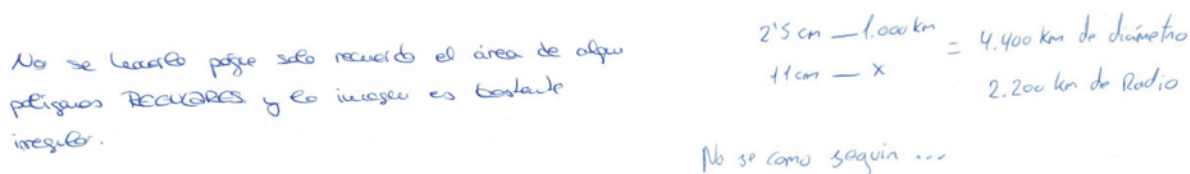 No se hacerlo porque solo recuerdo el área de algun
poligonos REGULARES y la imagen es bastante
irregular.
2'5 cm — 1.000 km
11 cm — x
= 4.400 km de diámetro
2.200 km de Radio
No se como seguir ...